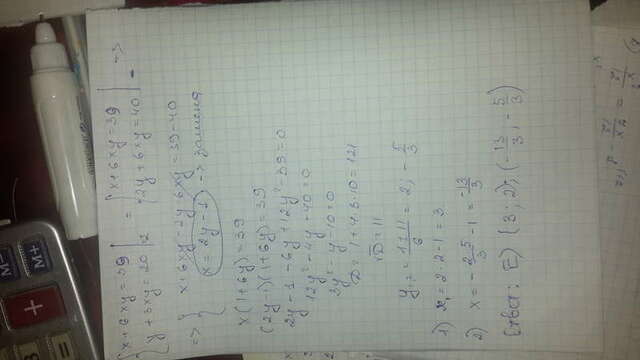 { x + 6xy = 39
{ y + 3xy = 20 | ·2 = { x + 6xy = 39
{ 2y + 6xy = 40 | - =>
=> { x + 6xy - 2y - 6xy = 39 - 40
x = 2y - 1 -> замена
x(1 + 6y) = 39
(2y - 1)(1 + 6y) = 39
2y - 1 - 6y + 12y² - 39 = 0
12y² - 4y - 40 = 0
3y² - y - 10 = 0
D = 1 + 4·3·10 = 121
√D = 11
y₁,₂ = (1 ± 11)/6 = 2; -5/3
1) x₁ = 2·2 - 1 = 3
2) x = -2·5/3 - 1 = -13/3
Ответ: E) (3; 2); (-13/3; -5/3)
M-
M+
+
=